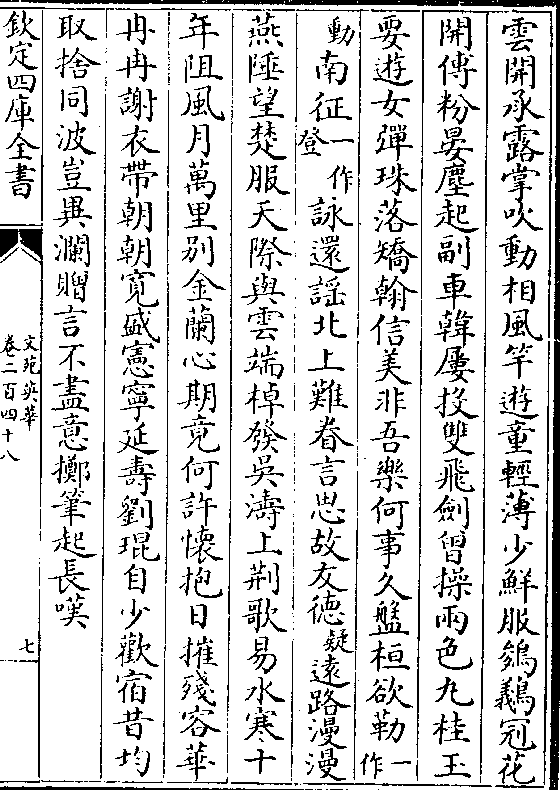 雲開承露掌吹動相風竿遊童輕薄少鮮服鵕鸃冠花
開傅粉晏塵起副車韓屢投雙飛劍曾操兩色丸桂玉
要遊女彈珠落矯翰信美非吾樂何事久盤桓欲勒一作
動南征一作登詠還謡北上難眷言思故友德疑遠路漫漫
燕陲望楚服天際與雲端棹發吳濤上荆歌易水寒十
年阻風月萬里别金蘭心期竟何許懷抱日摧殘容華
冉冉謝衣帶朝朝寛盛憲寧延壽劉琨自少歡宿昔均
取捨同波豈異瀾贈言不盡意擲筆起長嘆
欽定四庫全書
文苑英華
卷二百四十八
七